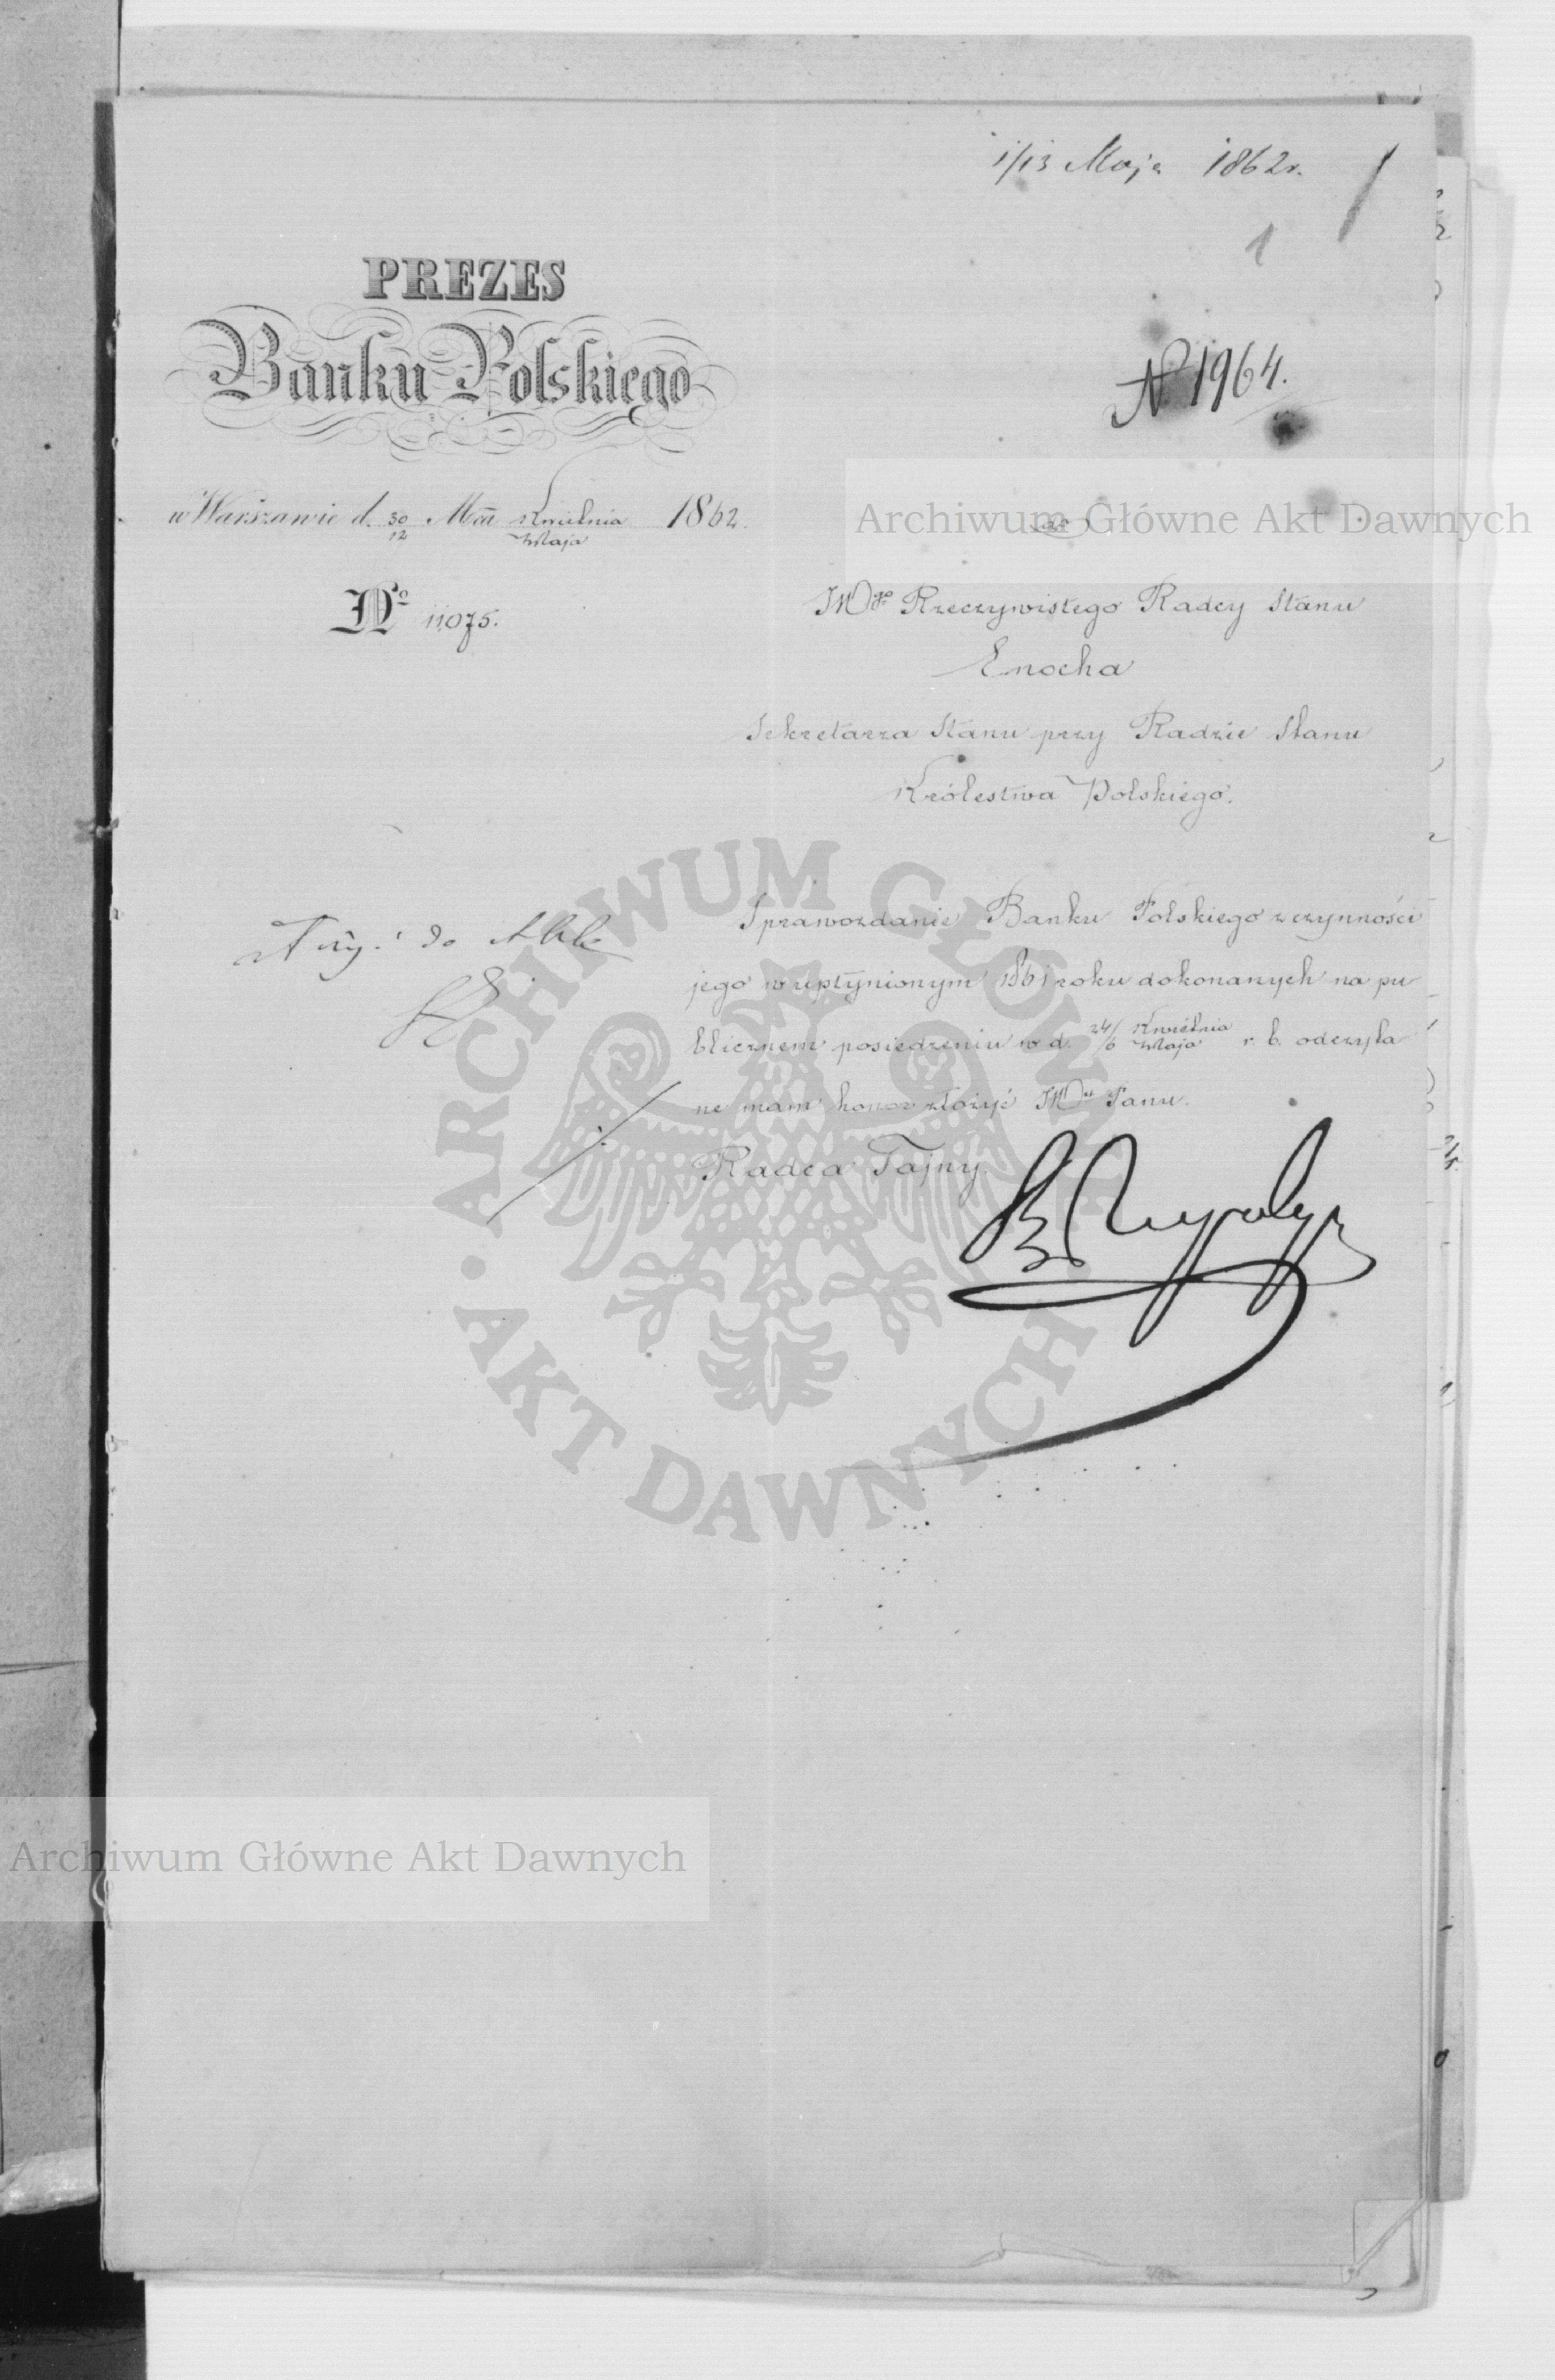 1/13 Maja 1862 r.
1
PREZES
Banku Polskiego
N. 1964.
w Warszawie d. 30/12 Mca Kwietnia/Maja 1862.
No 11,075.
do
JWgo Rzeczywistego Radcy Stanu
Enocha
Sekretarza Stanu przy Radzie Stanu
Królestwa Polskiego.
do Akt
Sprawozdanie Banku Polskiego z czynności
jego w upłynionym 1861 roku dokonanych na pu
blicznem posiedzeniu w d. 24/6 Kwietnia/Maja r. b. odczyta
ne mam honor złożyć JWu Panu.
Radca Tajny.
Archiwum Główne Akt Dawnych
ARCHIWUM GŁÓWNE AKT DAWNYCH
Archiwum Główne Akt Dawnych